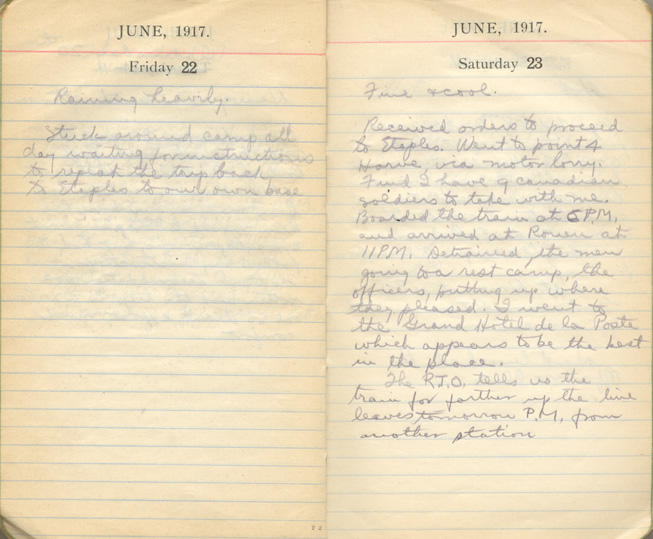 JUNE, 1917.
Friday 22
Raining heavily.
Stuck around camp all
day waiting for instructions
to repeat the trip back
to Etaples to our own base
22
JUNE, 1917.
Saturday 23
Fine & cool.
Received orders to proceed
to Etaples. Went to point 4
Havre, via motor lorry.
Find I have 9 canadian
soldiers to take with me.
Boarded the train at 6 P.M.
and arrived at Rouen at
11 P.M. Detrained, the men
going to a rest camp, the
officers, putting up where
they pleased. I went to
the Grand Hotel de la Poste
which appears to be the best
in the place.
The R.T.O. tells us the
train for farther up the line
leaves tomorrow P.M. from
another station